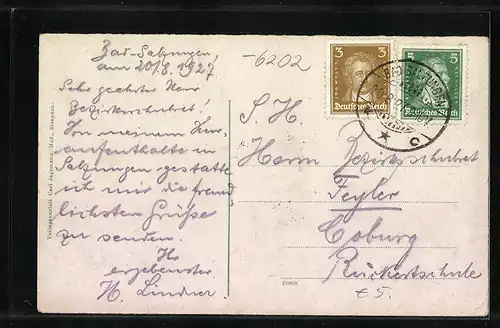 Bad-Salzungen,
am 20/8. 1927
Sehr geehrter Herr
Bezirksschulrat!
Von meinem Kur-
aufenthalte in
Salzungen gestatte
ich mir die freund-
lichsten Grüße
zu senden.
Ihr
ergebenster
H. Lindner
-6202
3 3
Deutsches Reich
5 5
Deutsches Reich
S. H.
Herrn Bezirksschulrat
Feyler
Coburg
Rückertschule
€5.
Verlagsanstalt Carl Jagemann, Hof,